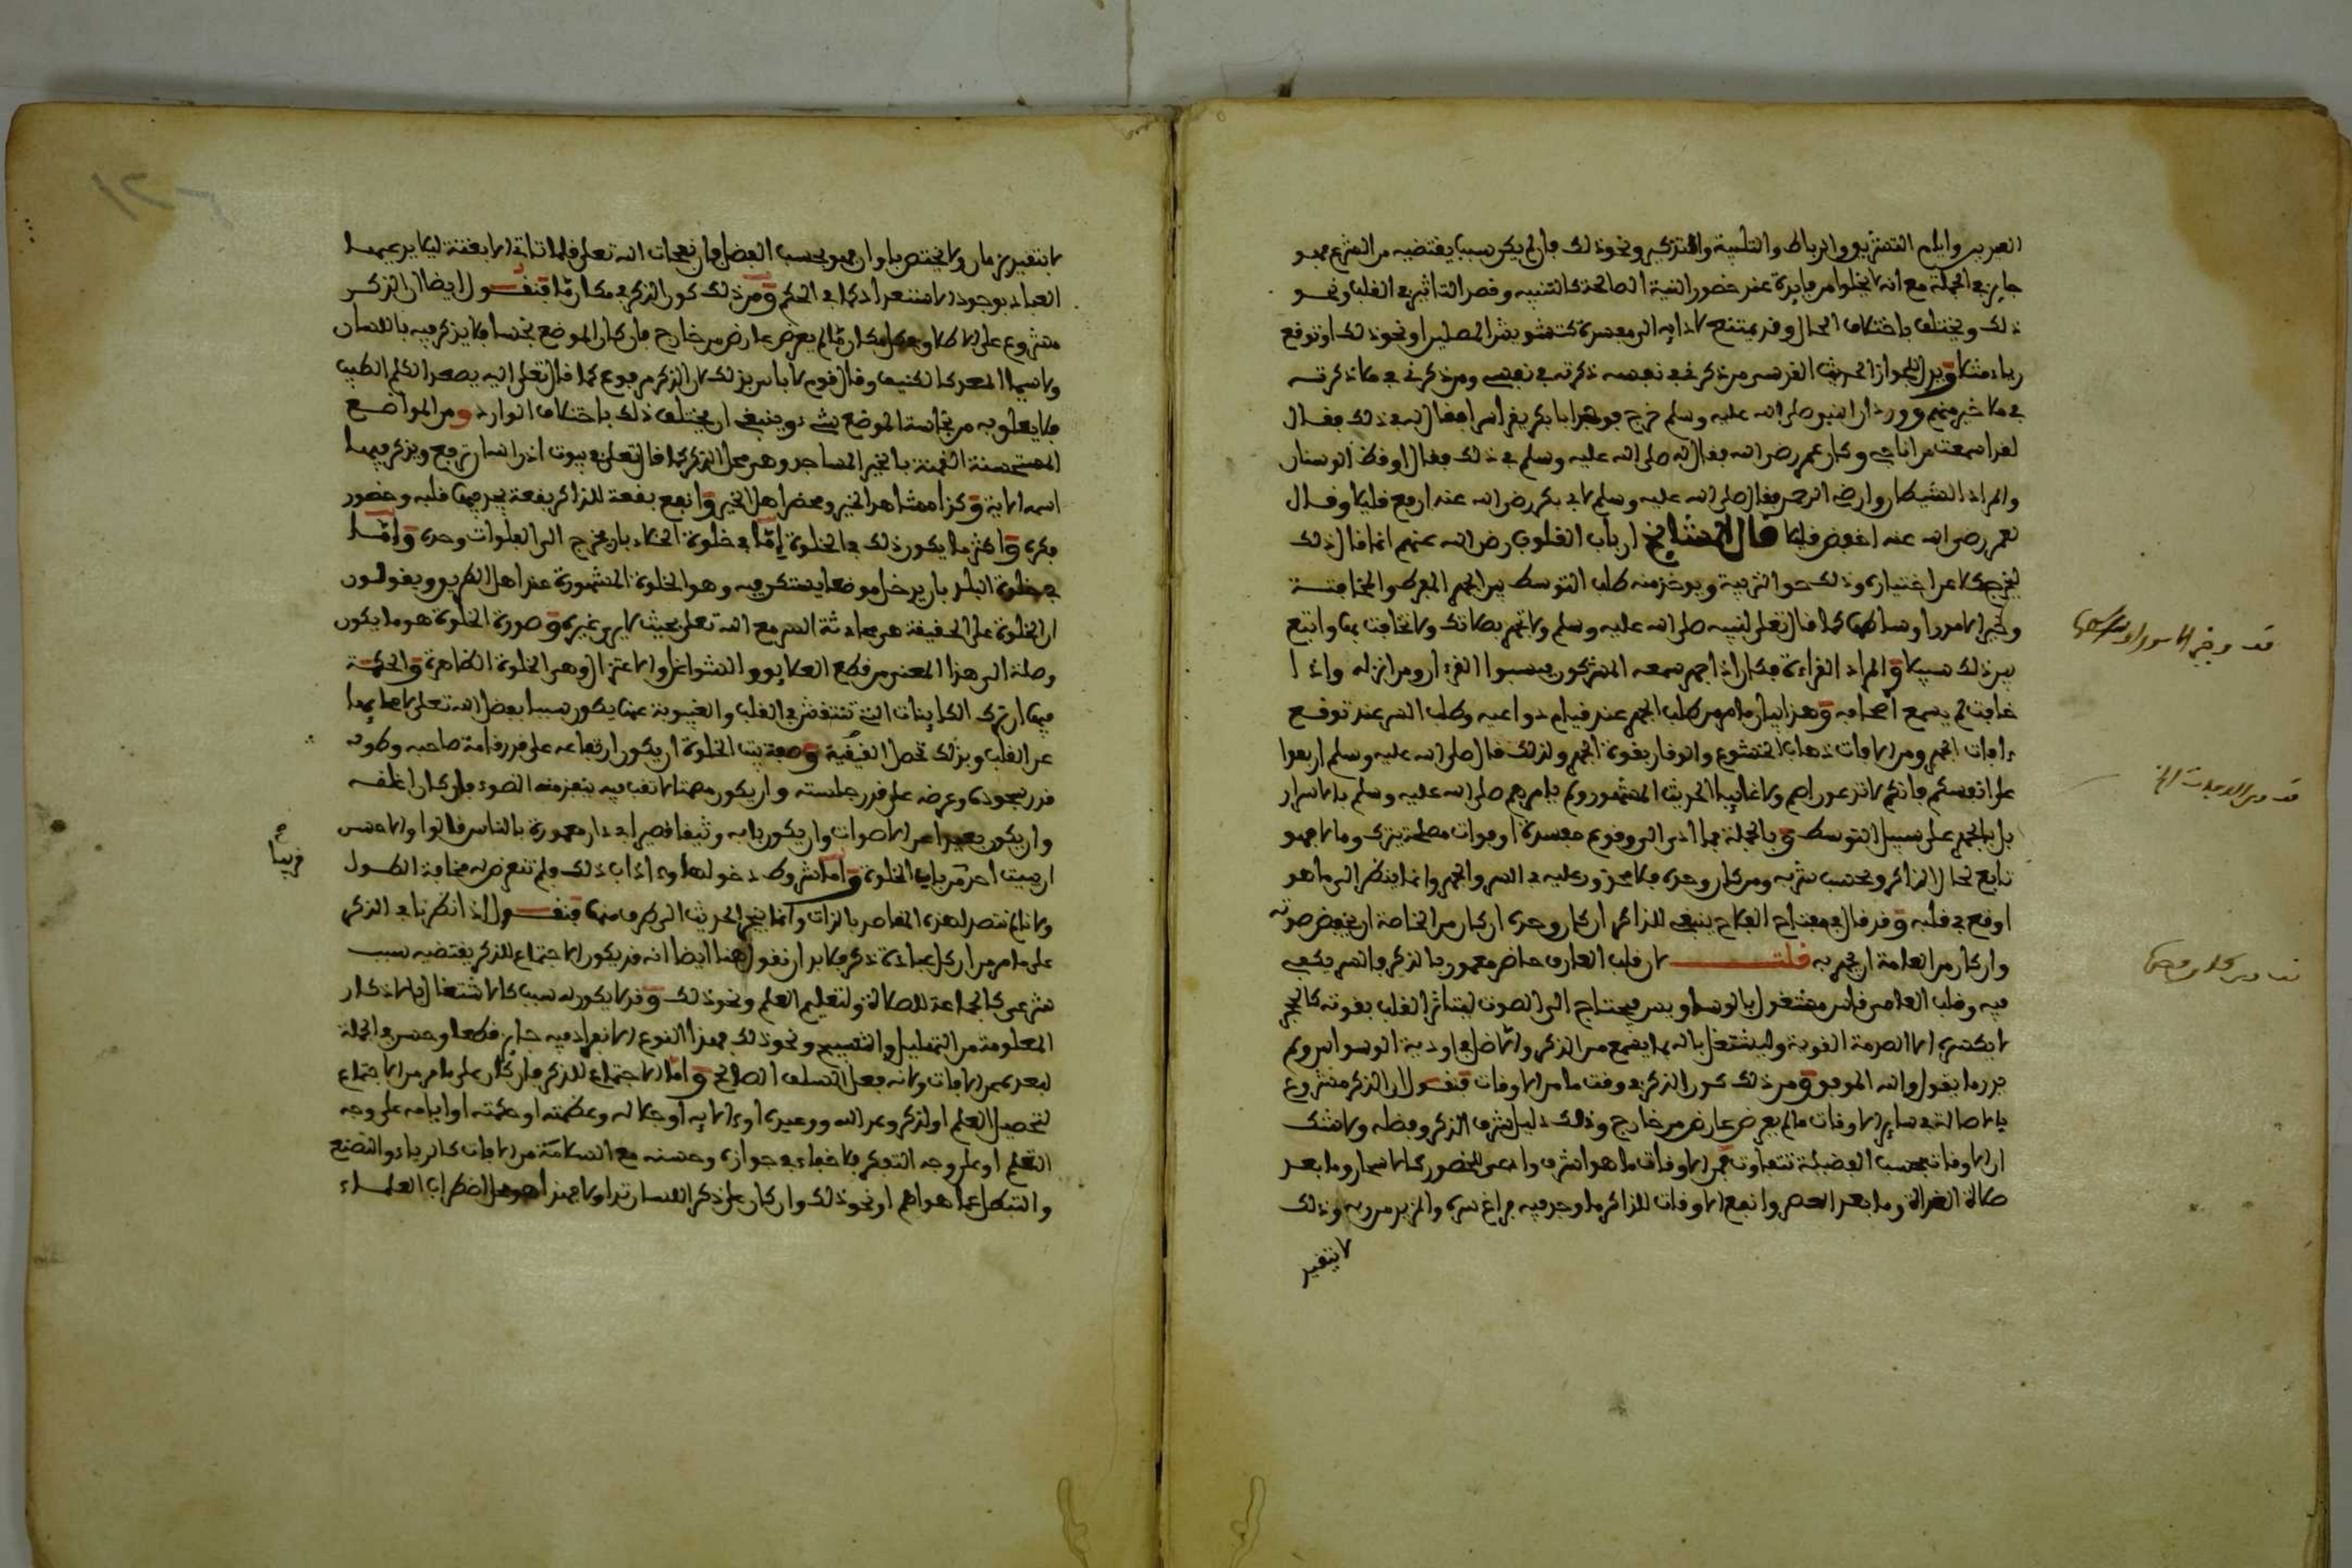 العيدين وايام التشريق والرباط والتلبية والتذكير ونحو ذلك فان لم يكن سببا يقتضيه من الشرع فهو
جايز في الجملة مع انه لا يخلوا من فايدة عند حضور النية الصالحة كالتنبيه وقصد التاثير في القلب ونحو
ذلك ويختلف باختلاف الحال وقد يمتنع لادايه الى مفسدة كتشويش المصلين او نحو ذلك او توقع
رياء مثلا ويدل للجواز الحديث القدسي من ذكرني في نفسه ذكرته في نفسي ومن ذكرني في ملا ذكرته
في ملا خير منهم وورد ان النبي صلى الله عليه وسلم خرج فوجد ابا بكر يقرا سرا فقال له في ذلك فقال
لقد اسمعت من اناجي وكان عمر رضي الله فقال له صلى الله عليه وسلم في ذلك فقال اوقظ الوسنان
واطرد الشيطان وارضي الرحمن فقال صلى الله عليه وسلم لابي بكر رضي الله عنه ارفع قليلا وقال
لعمر رضي الله عنه اخفض قليلا قال المشايخ ارباب القلوب رضي الله عنهم انما قال ذلك
ليخرجهما عن اختيارهما وذلك حق التربية ويوخذ منه طلب التوسط بين الجهر المفرط والمخافتة
وخير الامور اوساطها كما قال تعلى لنبيه صلى الله عليه وسلم ولا تجهر بصلاتك ولا تخافت بها وابتغ
بين ذلك سبيلا والمراد القراءة فكان اذا جهر سمعه المشركون فيسبوا القرءان ومن انزله واذا
خافت لم يسمع اصحابه وهذا بيان ما مر من طلب الجهر عند قيام دواعيه وطلب السر عند توقع
ءافات الجهر ومن الافات ذهاب الخشوع والوقار بقوة الجهر ولذلك قال صلى الله عليه وسلم اربعوا
على انفسكم فانكم لا تدعون اصم ولا غائبا الحديث المشهور ولم يامرهم صلى الله عليه وسلم بالاسرار
بل بالجهر على سبيل التوسط وبالجملة فما ادى الى وقوع مفسدة او فوات مصلحة يترك وما لا فهو
تابع لحال الذاكر وبحسب شربه ومن كان وحده فلا محذور عليه في السر والجهر وانما ينظر الى ما هو
اوقع في قلبه وقد قال في مفتاح الفلاح ينبغي للذاكر ان كان وحده ان كان من الخاصة ان يخفض صوته
وان كان من العامة ان يجهر به قلت لان قلب العارف حاضر معمور بالذكر فالسر يكفي
فيه وقلب العامي قاس مشغول بالوساوس فيحتاج الى الصوت ليتاثر القلب بقوته كالحجر
لا يكسره الا الصدمة القوية وليشتغل باله بما يسمع من الذكر والا ضل في اودية الوسواس ولم
يدر ما يقول والله الموفق ومن ذلك كون الذكر في وقت ما من الاوقات فنقول ان الذكر مشروع
بالاصالة في ساير الاوقات ما لم يعرض عارض من خارج وذلك دليل شرف الذكر وفضله ولا شك
ان الاوقات بحسب الفضيلة تتفاوت فمن الاوقات ما هو اشرف وادعى للحضور كالاسحار وما بعد
صلاة الغداة وما بعد العصر وانفع الاوقات للذاكر ما وجد فيه فراغ سره والمزيد من ربه وذلك
لا يتقيد
لا يتقيد بزمان ولا يختص باوان فهو بحسب الفضل فان نفحات الله تعلى قلما تاتي الا بغتة ليلا يدعيها
العباد بوجود الاستعداد كما في الحكم ومن ذلك كون الذكر في مكان ما فنقول ايضا ان الذكر
مشروع على الاطلاق في كل مكان ما لم يعرض عارض من خارج فان كان الموضع نجسا فلا يذكر فيه باللسان
ولا سيما المعد كالكنيف وقال قوم لا باس بذلك لان الذكر مرفوع كما قال تعلى اليه يصعد الكلم الطيب
فلا يعلق به من نجاسة الموضع شيء وينبغي ان يختلف ذلك باختلاف الوارد ومن المواضع
المستحسنة القمنة بالخير المساجد وهي محل الذكر كما قال تعلى في بيوت اذن الله ان ترفع ويذكر فيها
اسمه الاية وكذا مشاهد الخير ومحضر اهل الخير وانفع بقعة للذاكر بقعة يجد فيها قلبه وحضور
فكره واكثر ما يكون ذلك في الخلوة إما في خلوة الخلاء بان يخرج الى الفلوات وحده وإما
في خلوة البلد بان يدخل موضعا يستكن فيه وهو الخلوة المشهورة عند اهل الطريق ويقولون
ان الخلوة على الحقيقة هي محادثة السر مع الله تعلى بحيث لا يرى غيره وصورة الخلوة هو ما يكون
وصلة الى هذا المعنى من قطع العلايق والشواغل والاعتزال وهي الخلوة الظاهرة والحكمة
فيها ان ترك الكاينات التي تنتقش في القلب والغيبوبة عنها يكون سببا بفضل الله تعلى لامحايها
عن القلب وبذلك تحصل الحقيقية وصفة بيت الخلوة ان يكون ارتفاعه على قدر قامة صاحبه وطوله
قدر سجوده وعرضه على قدر جلسته وان يكون مصمتا لا ثقب فيه ينفذ منه الضوء فان كان اغلقه
وان يكون بعيدا عن الاصوات وان يكون بابه وثيقا قصيرا في دار معمورة بالناس قالوا والاحسن
ان يبيت احد قريبا من باب الخلوة واما شروط دخولها وءاداب ذلك فلم نتعرض له مخافة الطول
ولانا لم نتصد لهذه المقاصد بالذات وانما ينجر الحديث الى طرف منها فنقول اذا نظرنا في الذكر
على ما مر من ان كل عبادة ذكر فلا بد ان نقول هنا ايضا انه قد يكون الاجتماع للذكر يقتضيه سبب
شرعي كالجماعة للصلاة ولتعليم العلم ونحو ذلك وقد لا يكون له سبب كالاشتغال بالاذكار
المعلومة من التهليل والتسبيح ونحو ذلك فهذا النوع الانفراد فيه جايز قطعا وحسن في الجملة
لبعده عن الافات ولانه فعل السلف الصالح واما الاجتماع للذكر فان كان على ما مر من الاجتماع
لتحصيل العلم او لذكر وعد الله ووعيده او ءالايه او جلاله وعظمته او حكمته او ايامه على وجه
التعلم او على وجه التفكر فلا خفاء في جوازه وحسنه مع السلامة من الافات كالرياء والتصنع
والتبطل عما هو اهم او نحو ذلك وان كان على ذكر اللسان تداولا فهذا هو محل اضطراب العلماء
قريبا